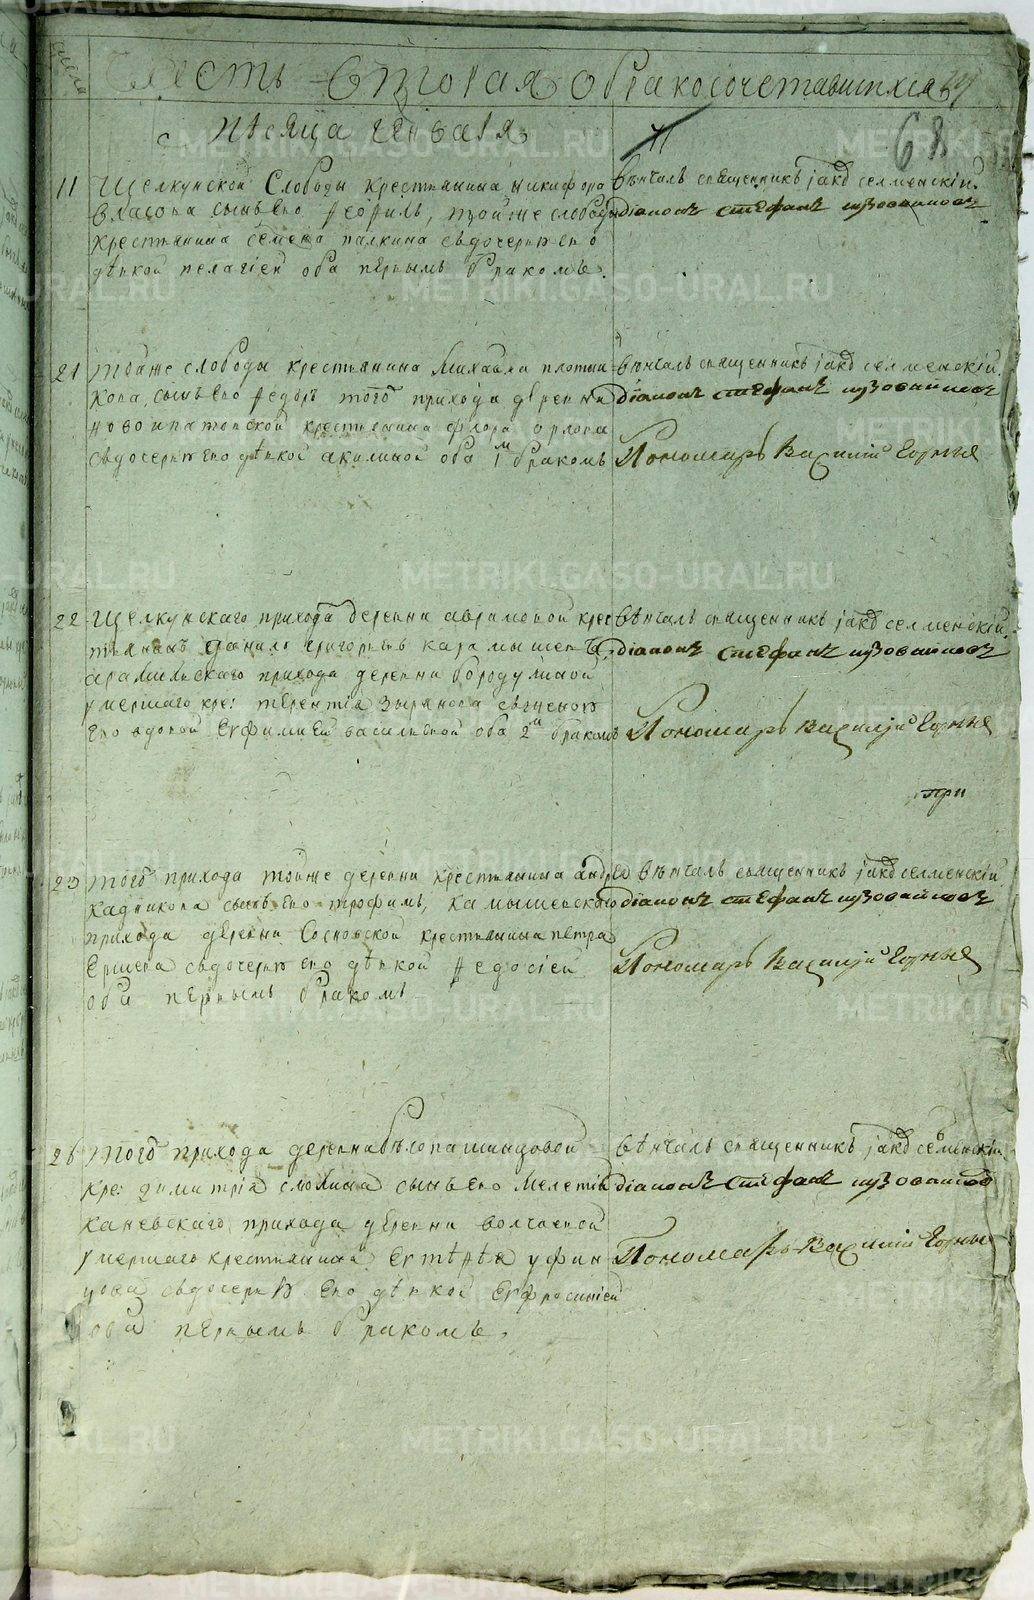 Часть вторая о бракосочетавшихся
числа
месяца генваря
68
11 Щелкунской Слободы крестьянина Никифора
Власова сынъ ево Феофилъ, тойже слободы
крестьянина семена палкина сдочерью ево
дѣвкой пелагiей оба первымъ бракомъ
Вѣнчалъ священникъ Iаковъ селменскiй
дiаконъ стефанъ
21 тояже слободы крестьянина Михаила плотни
кова, сынъ ево Федоръ того прихода деревни
новоипатовской крестьянина Флора орлова
сдочерью ево дѣвкой акилиной оба 1м бракомъ
Вѣнчалъ священникъ Iаковъ селменскiй
дiаконъ стефанъ
Пономарь Василiй
22 Щелкунскаго прихода деревни аврамовой крес
тьянинъ данило григорьевъ карамышевъ
арамильскаго прихода деревни бородулиной
умершаго кре: терентiя зырянова сженою
ево вдовой Евфимией васильевой оба 2м бракомъ
Вѣнчалъ священникъ Iаковъ селменскiй
дiаконъ стефанъ
Пономарь Василiй
при
23 того прихода тойже деревни крестьянина андрея
кадникова сынъ ево трофимъ, камышевского
прихода деревни Сосновской крестьянина петра
Ершева сдочерью ево дѣвкой Федосiей
оба первымъ бракомъ
вѣнчалъ священникъ Iаковъ селменскiй
дiаконъ стефанъ
Пономарь Василiй
26 того прихода деревни
кре: димитрiя сынъ ево Мелетiй
каневскаго прихода деревни волчаевой
умершаго крестьянина
сдочерью ево дѣвкой Ефросинiей
оба первымъ бракомъ.
вѣнчалъ священникъ Iаковъ селменскiй
дiаконъ стефанъ
Пономарь Василiй
METRIKI.GASO-URAL.RU